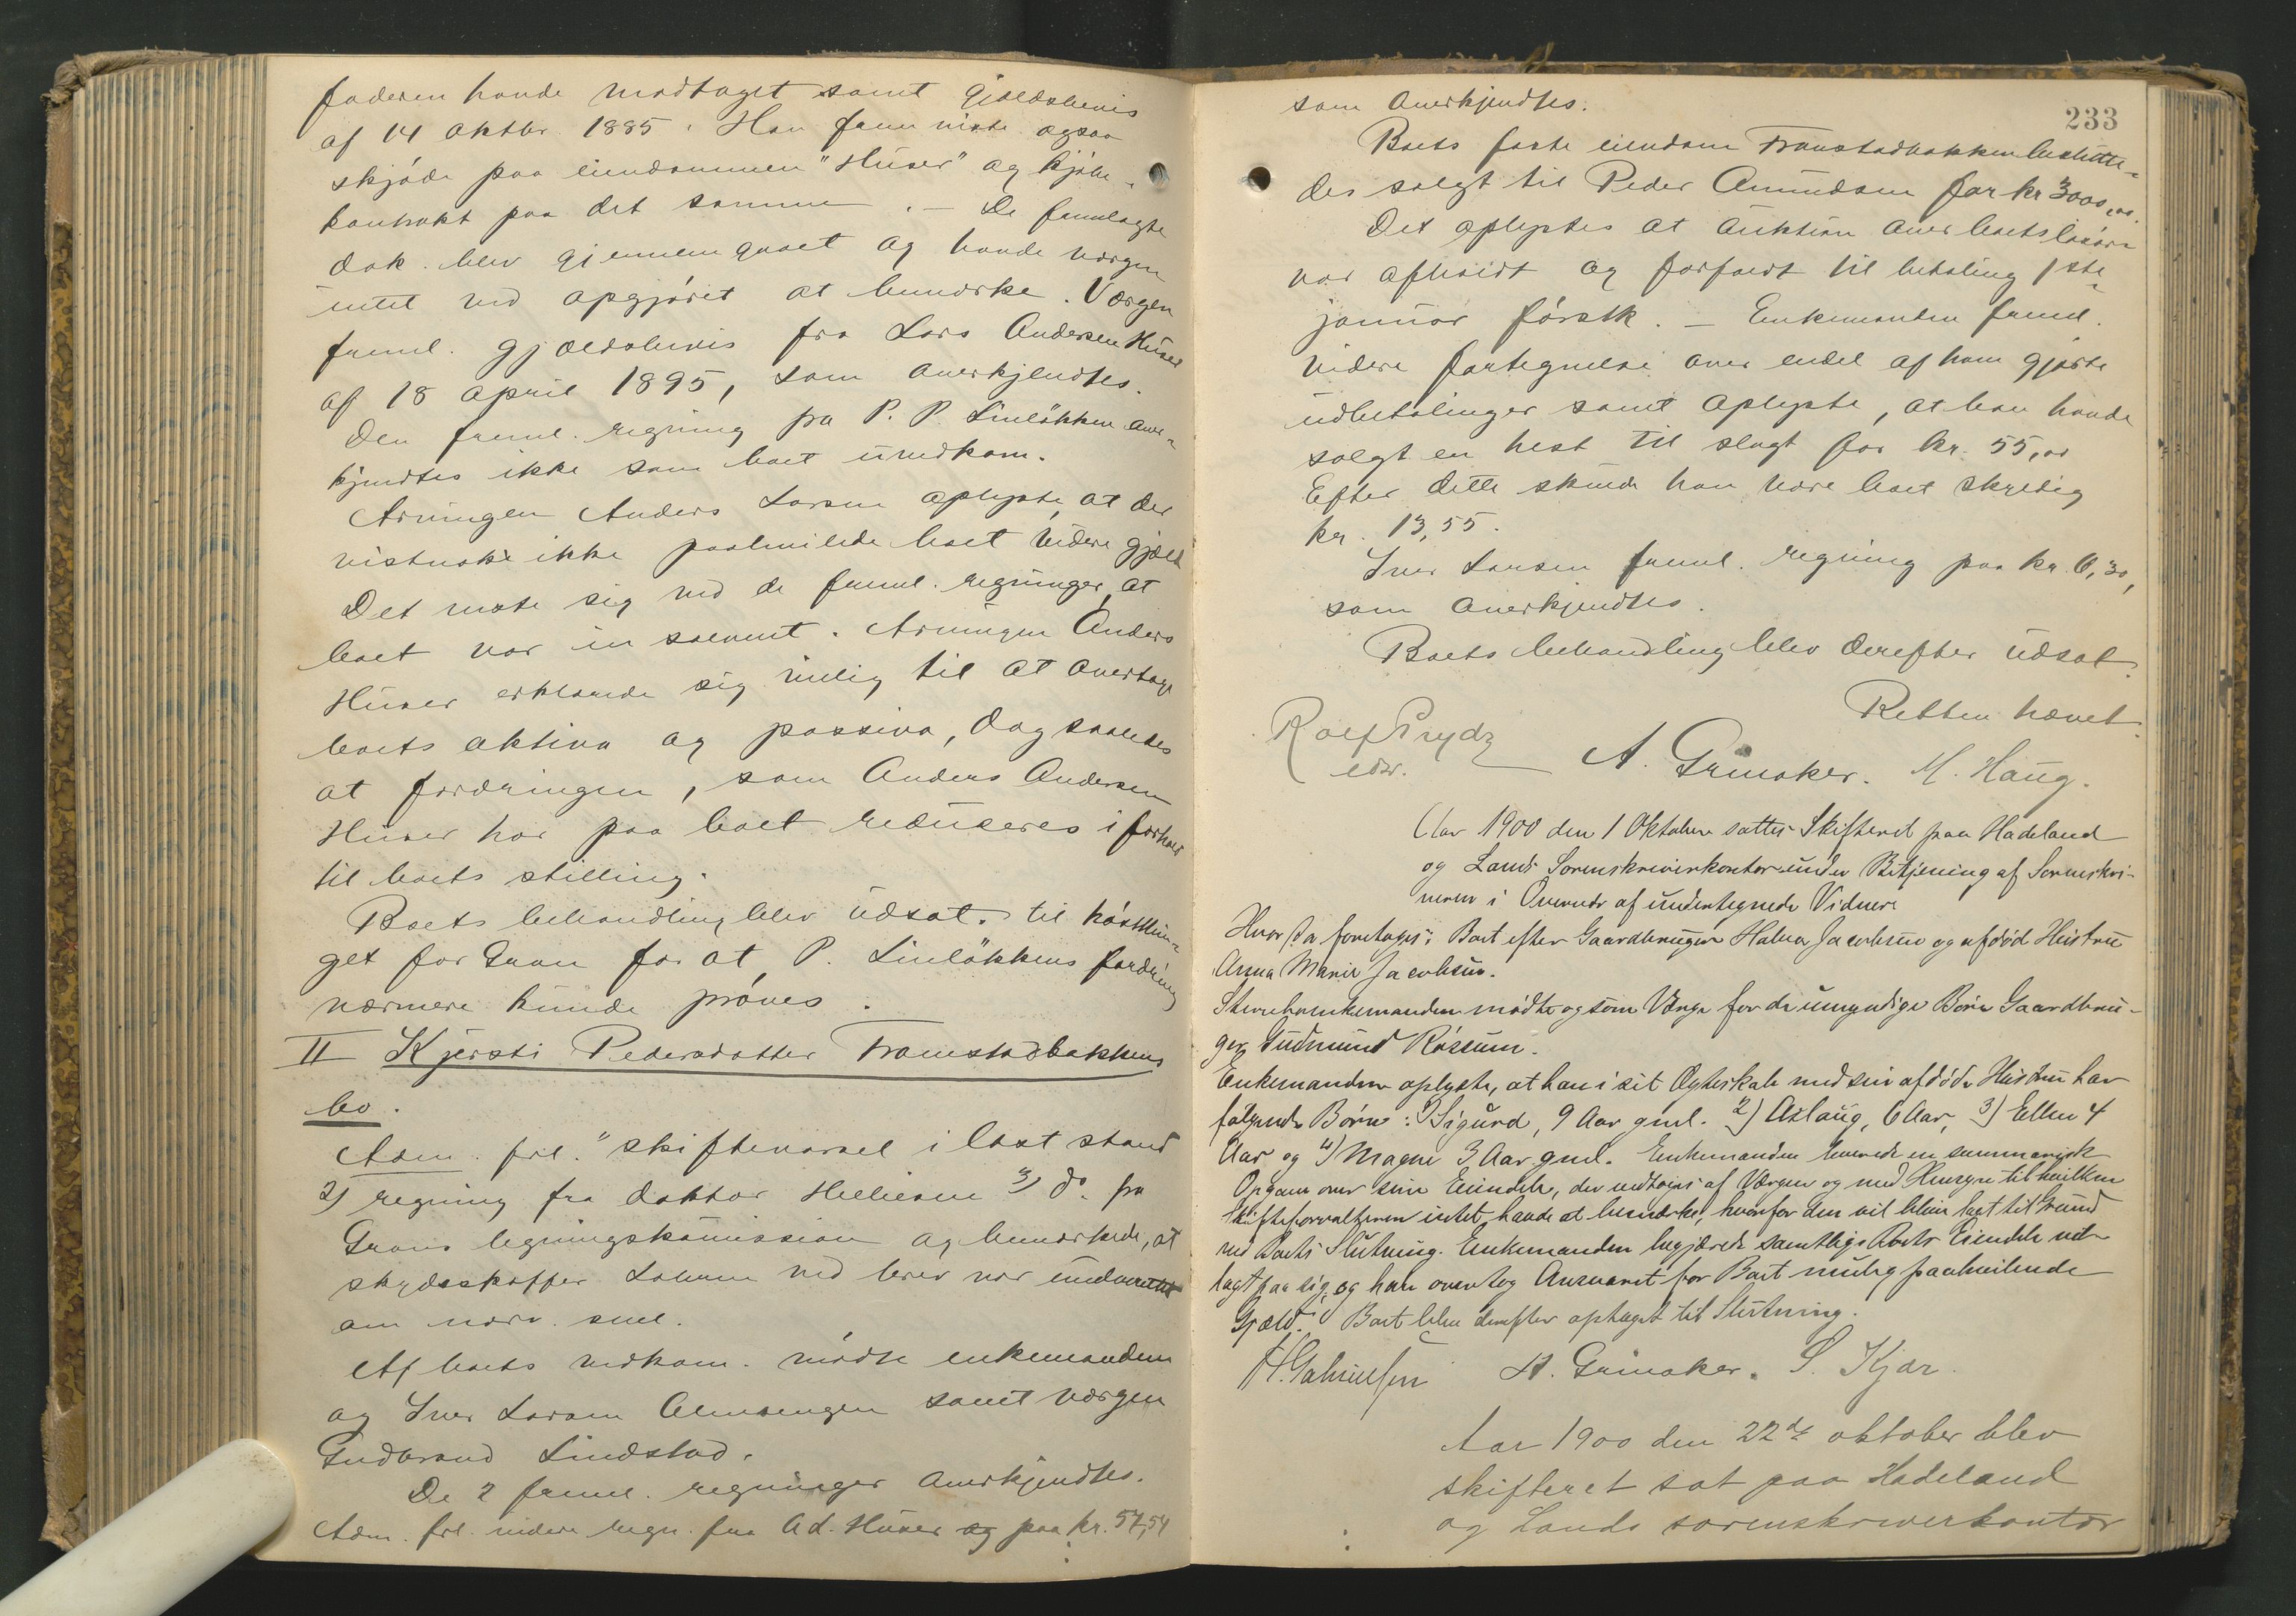 faderen havde modtaget samt gjældsbevis
af 14 oktbr. 1885. Han fremviste ogsaa
skjøde paa eiendommen "Huser" og kjøbe-
kontrakt paa det samme. — De fremlagte
dok. blev gjennemgaaet og havde værgen
intet ved opgjøret at bemærke. Værgen
freml. gjældsbevis fra Lars Andersen Huser
af 18 april 1895, som anerkjendtes.
Den freml. regning fra P. P. Linløkken aner-
kjendtes ikke som boet uvedkom.
Arvingen Anders Larsen oplyste, at der
vistnok ikke paahvilede boet videre gjæld
Det viste sig ved de freml. regninger, at
boet var insolvent. Arvingen Anders
Huser erklærede sig villig til at overtage
boets aktiva og passiva, dog saaledes
at fordringen, som Anders Andersen
Huser har paa boet reduseres i forhold
til boets stilling.
Boets behandling blev udsat til høstthin-
get for Gran for at P. Linløkkens fordring
nærmere kunde prøves.
II Kjersti Pedersdatter Framstadbakkens
bo.
Adm. frl. 1) skiftevarsel i lovl. stand
2) regning fra doktor Hellesen 3) do. fra
Grans ligningskomission og bemærkede, at
skydsskaffer Lohnen ved brev var underrettet
om nærv. saml.
Af boets vedkom. mødte enkemanden
og Iver Larsen Almsengen samt værgen
Gudbrand Lindstad.
De 2 freml. regninger anerkjendtes.
Adm. frl. videre regn. fra A. L. Huser og paa kr. 57,54
233
som anerkjendtes.
Boets faste eiendom Framstadbakken beslutte-
des solgt til Peder Amundsen for kr 3000,00.
Det oplystes at auktion over boets løsøre
var afholdt og forfaldt til betaling 1ste
januar førstk. — Enkemanden freml.
videre fortegnelse over endel af ham gjorte
udbetalinger samt oplyste, at han havde
solgt en hest til slagt for kr. 55,00
Efter dette skulde han være boet skyldig
kr. 13,55.
Iver Larsen freml. regning paa kr. 6,30,
som anerkjendtes.
Boets behandling blev derefter udsat.
Retten hævet.
Rolf Prydz
edsv.
A. Grinaker. M. Haug.
Aar 1900 den 1 Oktober sattes Skifteret paa Hadeland
og Lands Sorenskriverkontor under Betjening af Sorenskri-
veren i Overvær af undertegnede Vidner
Hvor da foretoges: Boet efter Gaardbruger Halvor Jacobsen og afdød Hustru
Anna Marie Jacobsen.
Stervboenkemanden mødte og som Værge for de umyndige Børn Gaardbru-
ger Gudmund Røssum.
Enkemanden oplyste, at han i sit Ægteskab med sin afdøde Hustru har
følgende Børn: 1) Sigurd, 9 Aar gml. 2) Aslaug, 6 Aar, 3) Ellen 4
Aar og 4) Magne 3 Aar gml. Enkemanden leverede en summarisk
Opgave over sine Eiendele, der vedtoges af Værgen og med Hensyn til hvilken
Skifteforvalteren intet havde at bemærke, hvorfor den vil blive lagt til Grund
ved Boets Slutning. Enkemanden begjærede samtlige Boets Eiendele ud-
lagt paa sig, og han overtog Ansvaret for Boet mulig paahvilende
Gjæld. Boet blev derefter optaget til Slutning.
H. Gabrielsen A. Grinaker. S. Kjær.
Aar 1900 den 22de oktober blev
skifteret sat paa Hadeland
og Lands sorenskriverkontor